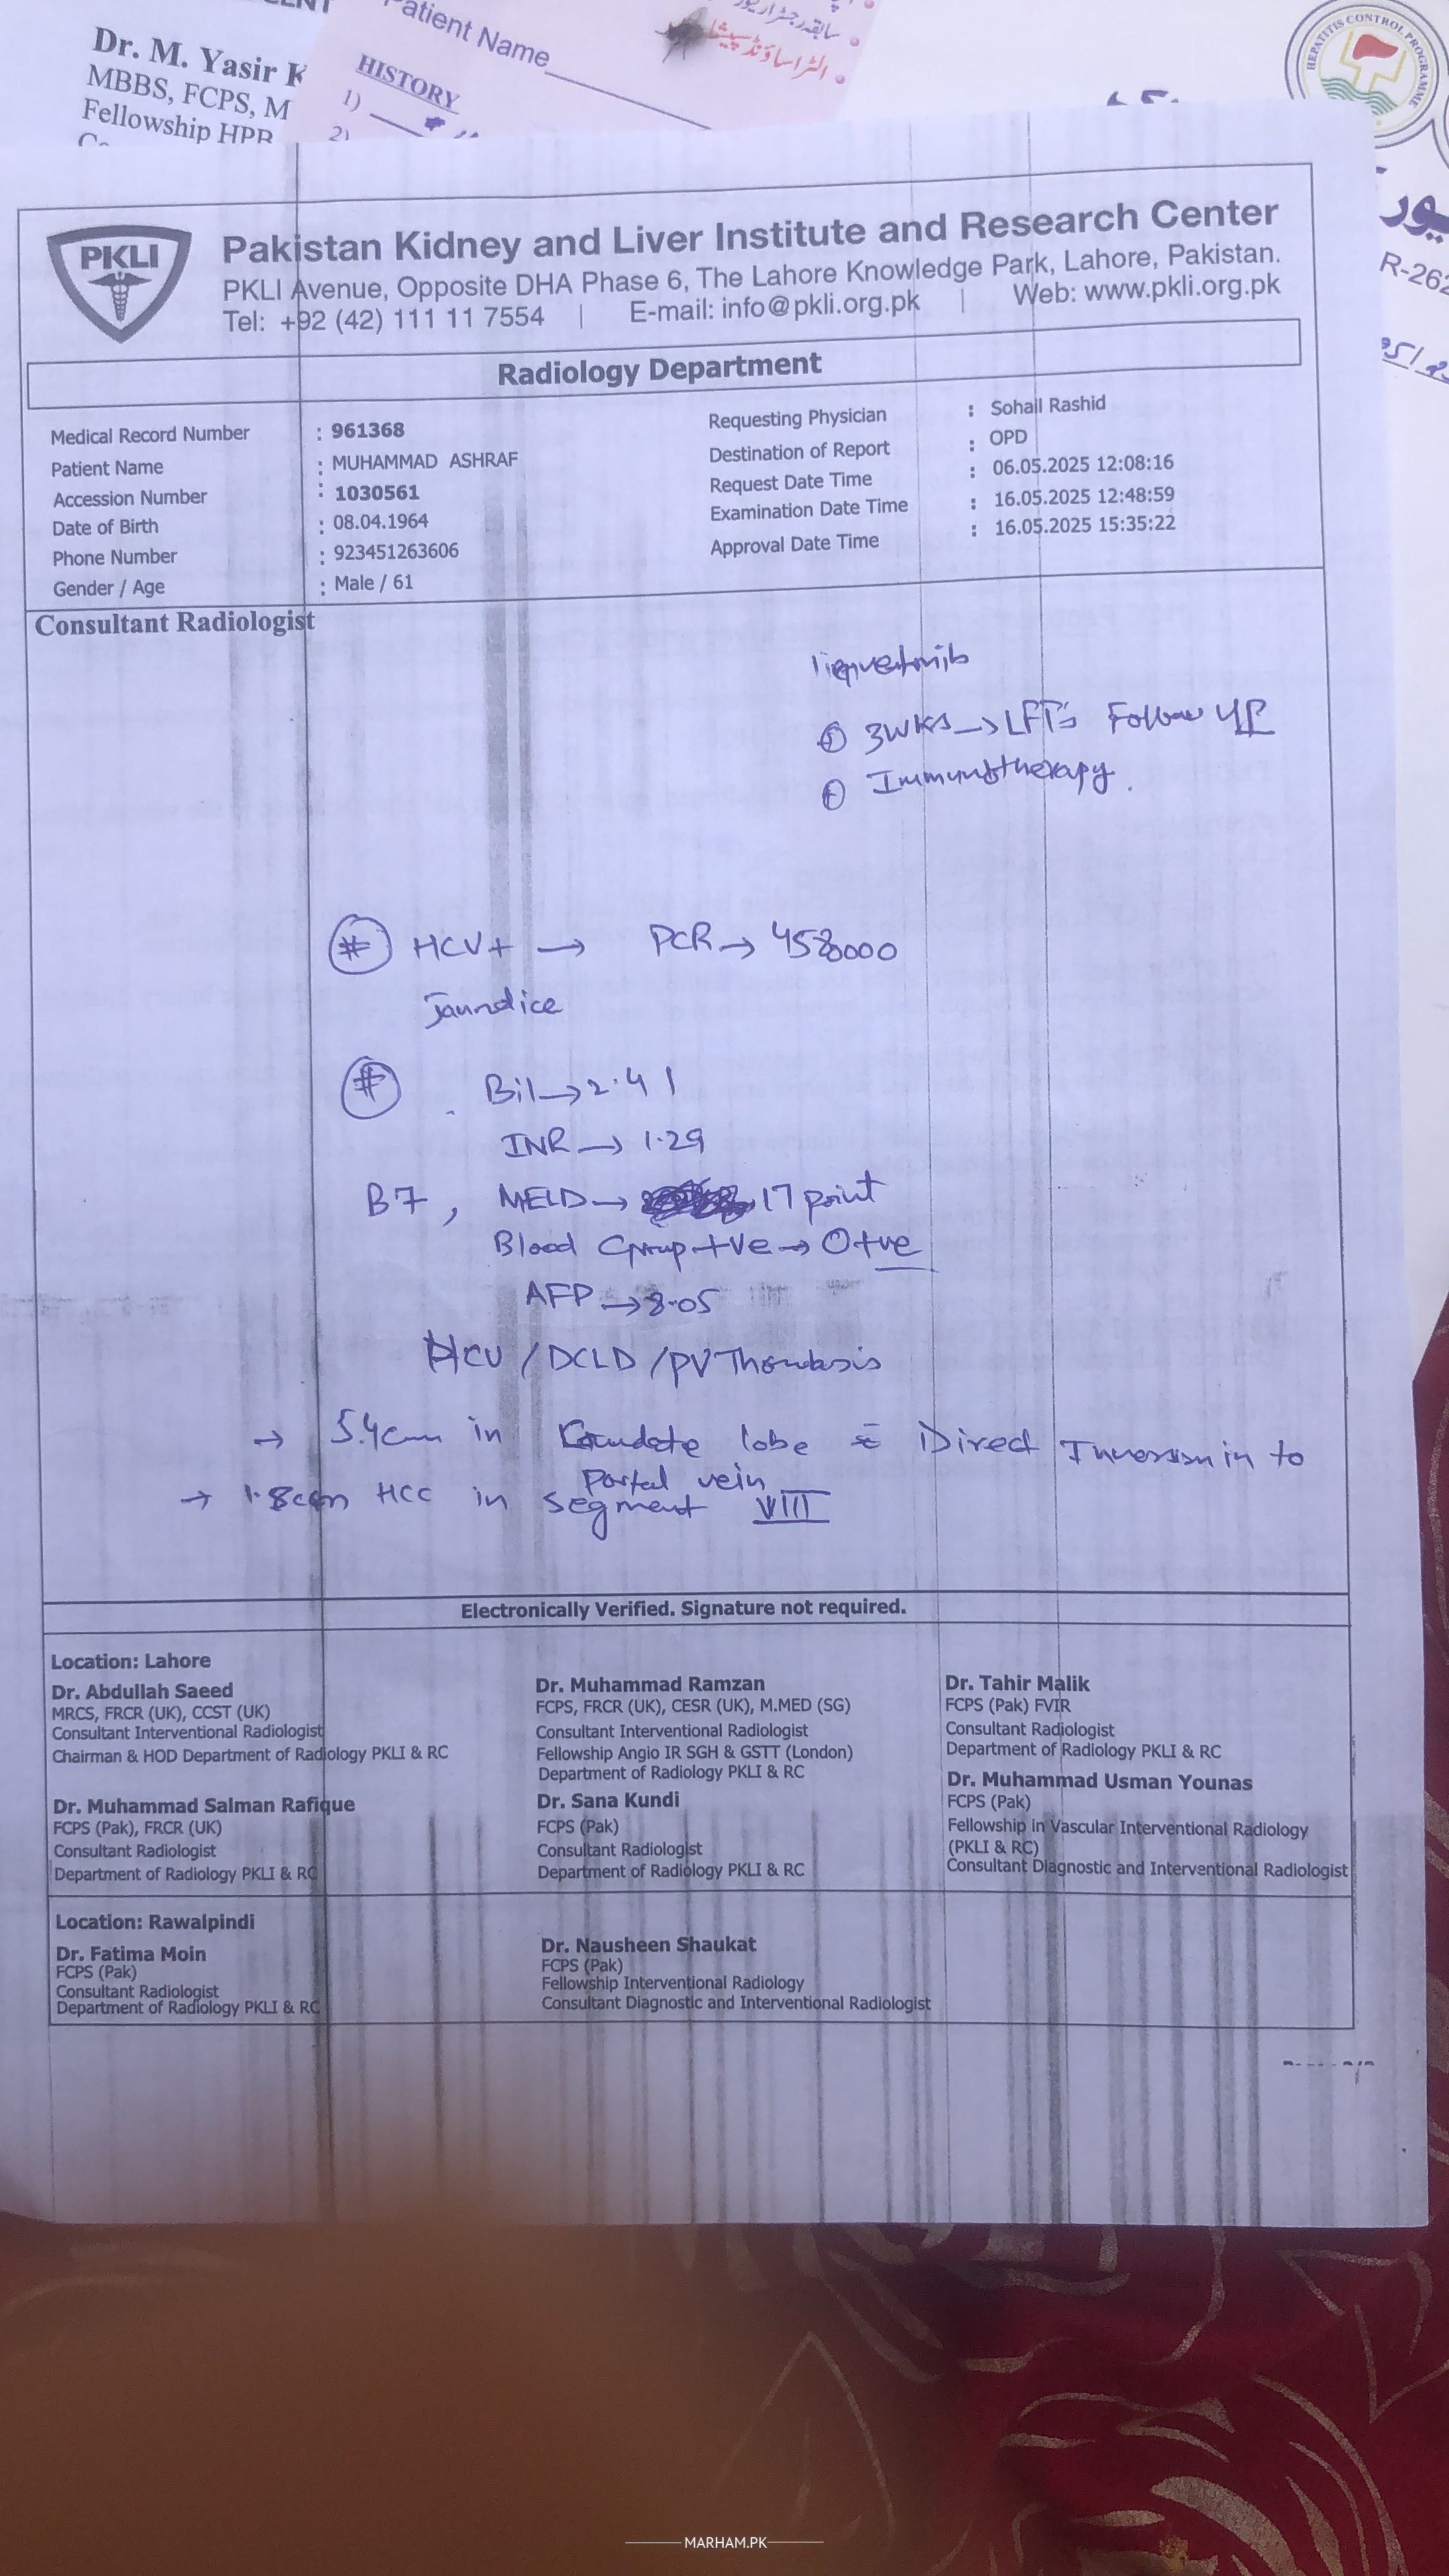 Dr. M. Yasir K
MBBS, FCPS, M
Fellowship HPB
Patient Name
HISTORY
1)
2)
سابقہ رجسٹرار
الٹراساؤنڈ سپیشل
HEPATITIS CONTROL PROGRAMME
R-262
PKLI
Pakistan Kidney and Liver Institute and Research Center
PKLI Avenue, Opposite DHA Phase 6, The Lahore Knowledge Park, Lahore, Pakistan.
Tel: +92 (42) 111 11 7554 | E-mail: info@pkli.org.pk | Web: www.pkli.org.pk
Radiology Department
Medical Record Number : 961368
Patient Name : MUHAMMAD ASHRAF
Accession Number : 1030561
Date of Birth : 08.04.1964
Phone Number : 923451263606
Gender / Age : Male / 61
Requesting Physician : Sohail Rashid
Destination of Report : OPD
Request Date Time : 06.05.2025 12:08:16
Examination Date Time : 16.05.2025 12:48:59
Approval Date Time : 16.05.2025 15:35:22
Consultant Radiologist
3WKS → LFT's Follow UP
Immunotherapy.
# HCV+ → PCR →
Jaundice
# Bil → 2.41
INR → 1.29
B7, MELD → 17 point
Blood Group +ve → O+ve
AFP → 8.05
HCV / DCLD / PV Thrombosis
→ 5.4cm in Caudate lobe c̄ Direct Inversion in to
portal vein
→ 1.8cm HCC in segment VIII
Electronically Verified. Signature not required.
Location: Lahore
Dr. Abdullah Saeed
MRCS, FRCR (UK), CCST (UK)
Consultant Interventional Radiologist
Chairman & HOD Department of Radiology PKLI & RC
Dr. Muhammad Ramzan
FCPS, FRCR (UK), CESR (UK), M.MED (SG)
Consultant Interventional Radiologist
Fellowship Angio IR SGH & GSTT (London)
Department of Radiology PKLI & RC
Dr. Tahir Malik
FCPS (Pak) FVIR
Consultant Radiologist
Department of Radiology PKLI & RC
Dr. Muhammad Salman Rafique
FCPS (Pak), FRCR (UK)
Consultant Radiologist
Department of Radiology PKLI & RC
Dr. Sana Kundi
FCPS (Pak)
Consultant Radiologist
Department of Radiology PKLI & RC
Dr. Muhammad Usman Younas
FCPS (Pak)
Fellowship in Vascular Interventional Radiology
(PKLI & RC)
Consultant Diagnostic and Interventional Radiologist
Location: Rawalpindi
Dr. Fatima Moin
FCPS (Pak)
Consultant Radiologist
Department of Radiology PKLI & RC
Dr. Nausheen Shaukat
FCPS (Pak)
Fellowship Interventional Radiology
Consultant Diagnostic and Interventional Radiologist
MARHAM.PK